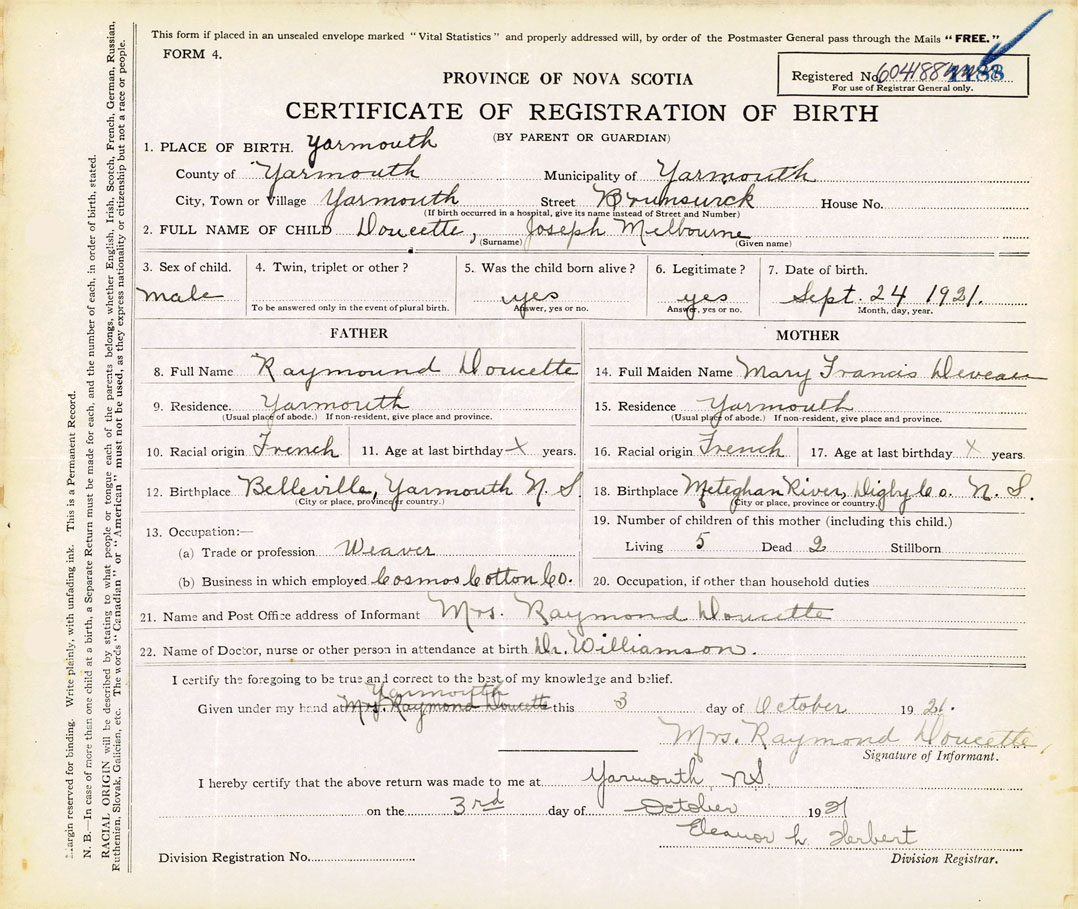 This form if placed in an unsealed envelope marked "Vital Statistics" and properly addressed will, by order of the Postmaster General pass through the Mails "FREE."
FORM 4.
PROVINCE OF NOVA SCOTIA
Registered No.
For use of Registrar General only.
CERTIFICATE OF REGISTRATION OF BIRTH
(BY PARENT OR GUARDIAN)
1. PLACE OF BIRTH. Yarmouth
County of Yarmouth Municipality of Yarmouth
City, Town or Village Yarmouth Street Brunswick House No.
(If birth occurred in a hospital, give its name instead of Street and Number)
2. FULL NAME OF CHILD Doucette, Joseph Melbourne
(Surname) (Given name)
3. Sex of child. 4. Twin, triplet or other? 5. Was the child born alive? 6. Legitimate? 7. Date of birth.
male yes yes Sept. 24 1921.
To be answered only in the event of plural birth. Answer, yes or no. Answer, yes or no. Month, day, year.
FATHER MOTHER
8. Full Name Raymound Doucette 14. Full Maiden Name Mary Francis Deveau
9. Residence. Yarmouth 15. Residence Yarmouth
(Usual place of abode.) If non-resident, give place and province. (Usual place of abode.) If non-resident, give place and province.
10. Racial origin French 11. Age at last birthday X years. 16. Racial origin French 17. Age at last birthday X years.
12. Birthplace Belleville, Yarmouth N. S. 18. Birthplace Meteghan River, Digby Co. N. S.
(City or place, province or country.) (City or place, province or country.)
13. Occupation:— 19. Number of children of this mother (including this child.)
(a) Trade or profession Weaver Living 5 Dead 2 Stillborn
(b) Business in which employed Cosmos Cotton Co. 20. Occupation, if other than household duties
21. Name and Post Office address of Informant Mrs. Raymond Doucette
22. Name of Doctor, nurse or other person in attendance at birth Dr. Williamson.
I certify the foregoing to be true and correct to the best of my knowledge and belief.
Yarmouth
Given under my hand at Mrs. Raymond Doucette this 3 day of October 1921.
Mrs. Raymond Doucette,
Signature of Informant.
I hereby certify that the above return was made to me at Yarmouth, NS
on the 3rd day of October 1921
Eleanor L. Herbert
Division Registration No. Division Registrar.
Margin reserved for binding. Write plainly, with unfading ink. This is a Permanent Record.
N. B.—In case of more than one child at a birth, a Separate Return must be made for each, and the number of each, in order of birth, stated.
RACIAL ORIGIN will be described by stating to what people or tongue each of the parents belongs, whether English, Irish, Scotch, French, German, Russian,
Ruthenian, Slovak, Galician, etc. The words "Canadian" or "American" must not be used, as they express nationality or citizenship but not a race or people.